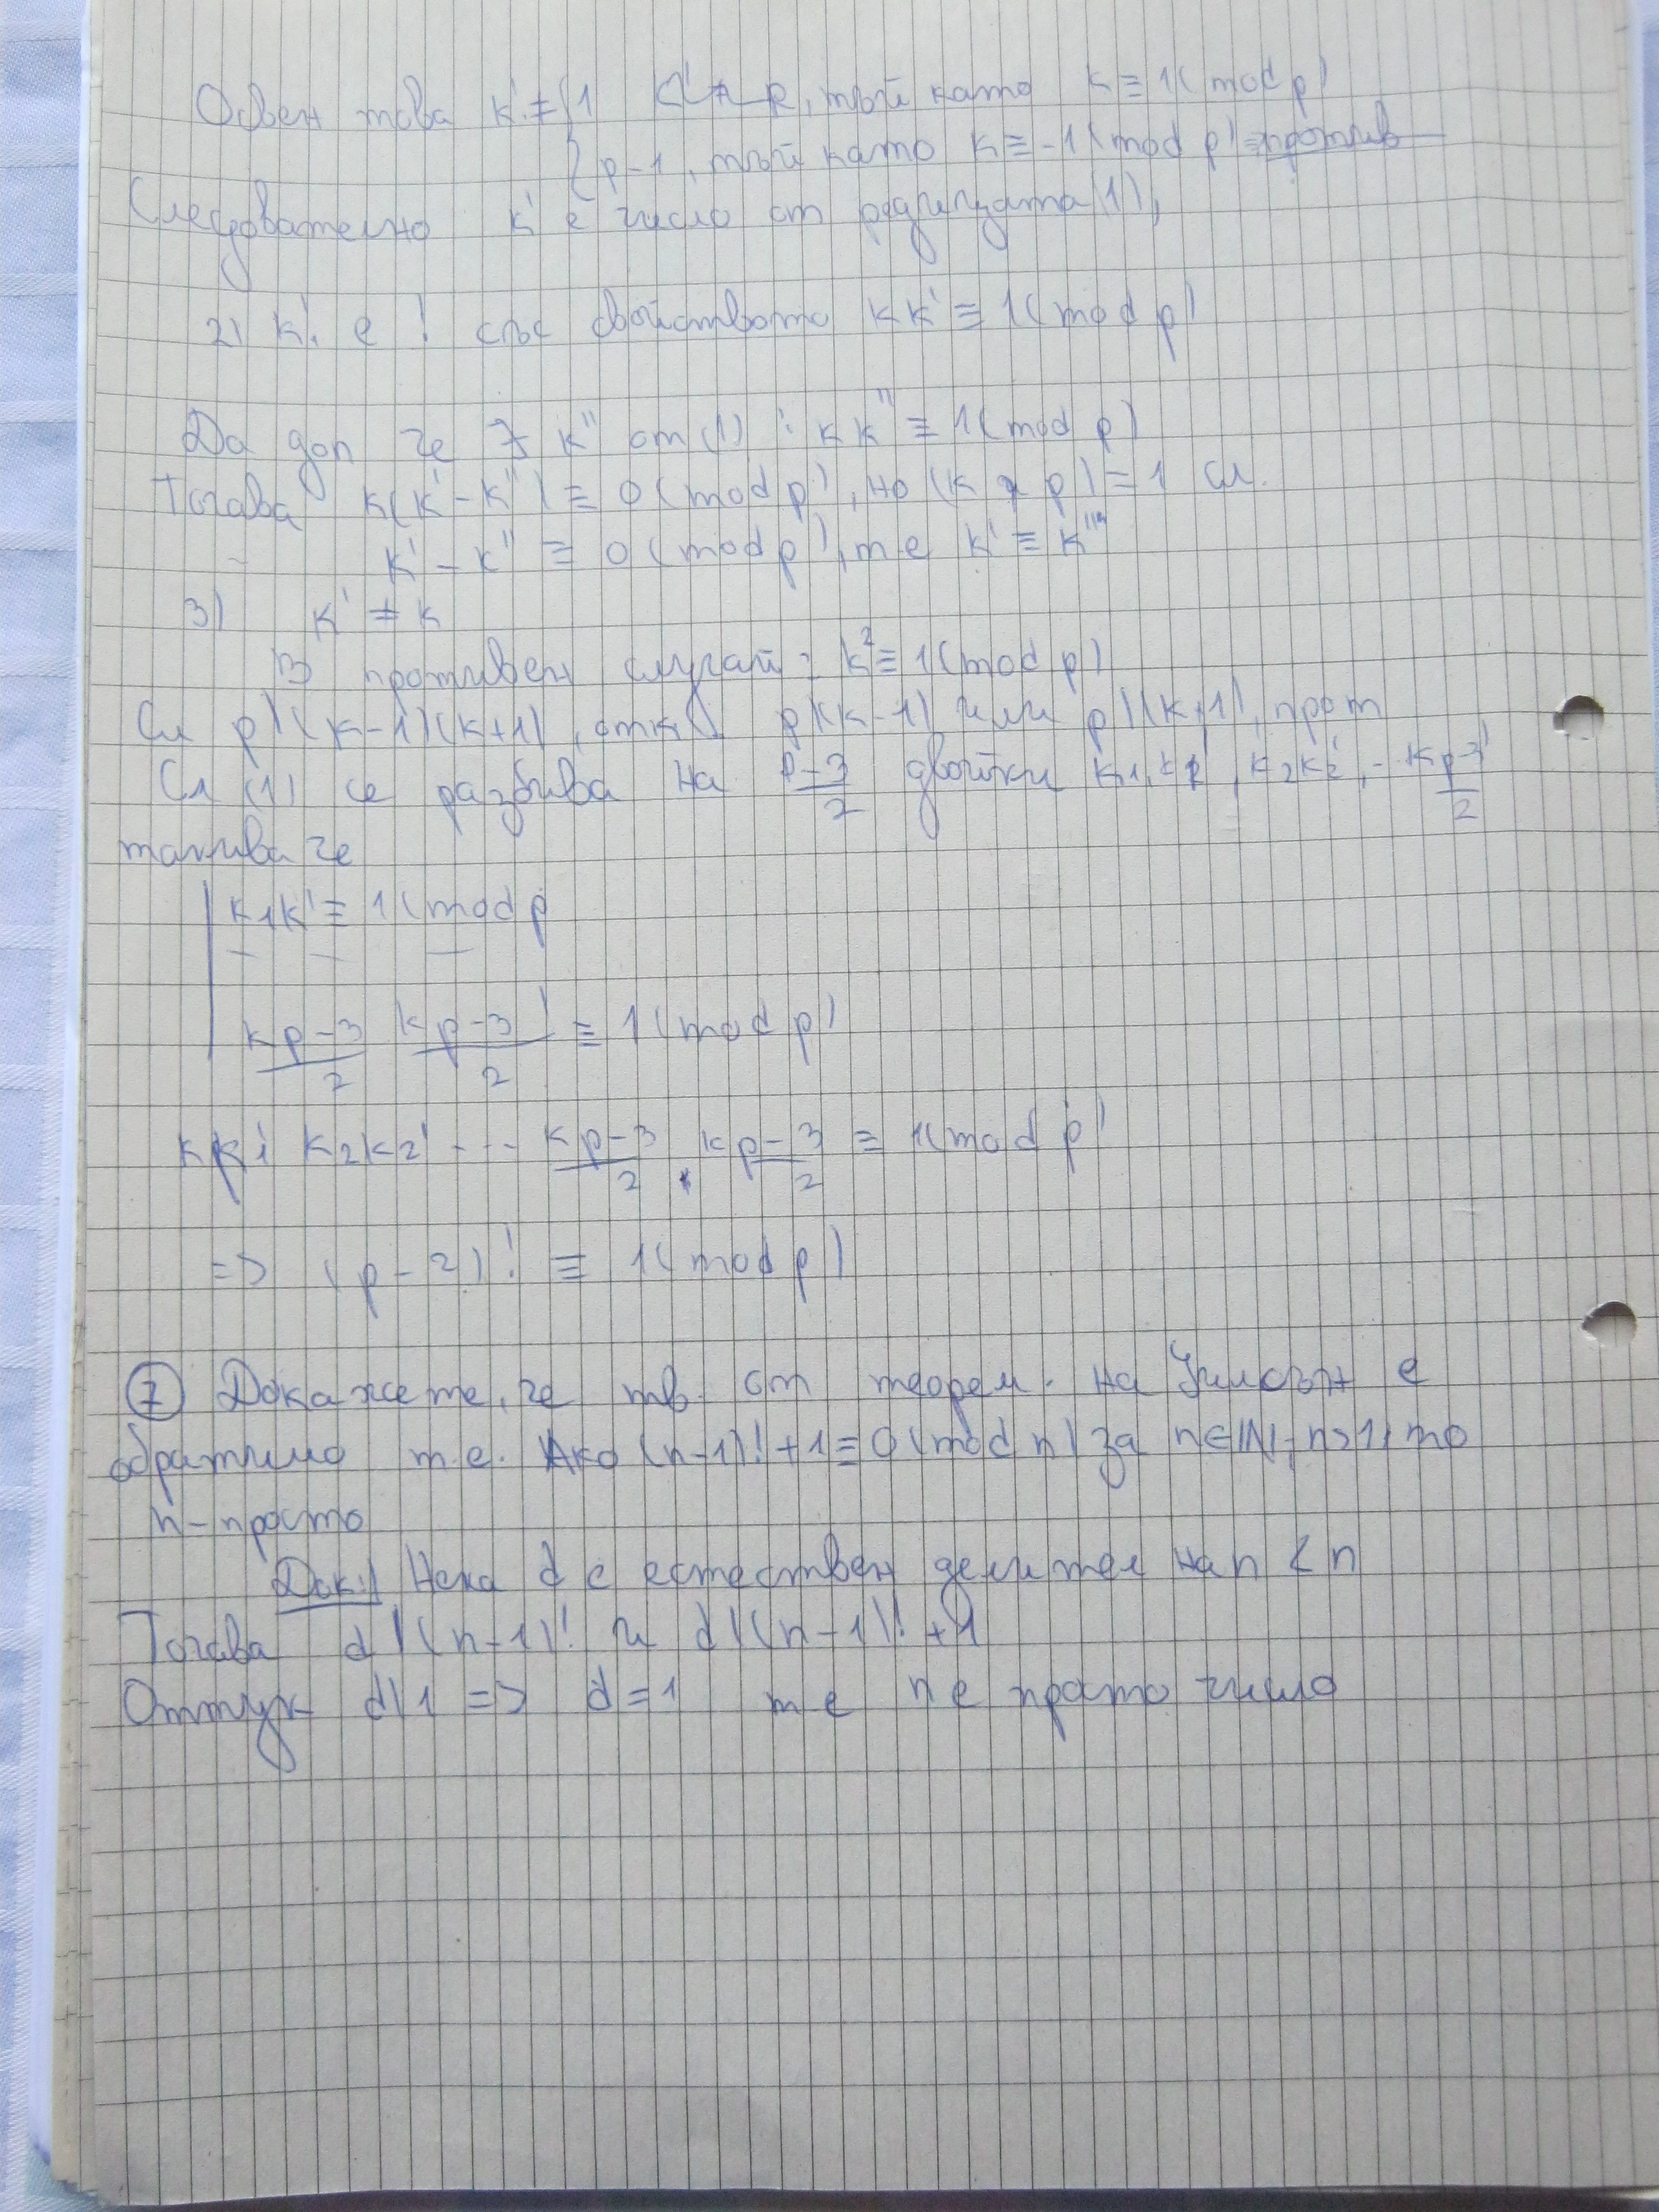 Освен това k' ≠ { 1, тъй като k ≡ 1 (mod p)
{ p-1, тъй като k ≡ -1 (mod p)
Следователно k' е число от редицата (1),
2) k' е ! със свойството kk' ≡ 1 (mod p)
Да доп че ∃ k'' от (1) : kk'' ≡ 1 (mod p)
Тогава k(k' - k'') ≡ 0 (mod p), но (k, p) = 1 сл.
k' - k'' ≡ 0 (mod p), т е k' ≡ k''
3) k' ≠ k
В противен случай: k² ≡ 1 (mod p)
Сл p | (k-1)(k+1), отк. p | (k-1) или p | (k+1), прот
Сл (1) се разбива на (p-3)/2 двойки k1, k1', k2k2', .. k(p-3)/2'
такива че
k1k' ≡ 1 (mod p
— — —
k(p-3)/2 k(p-3)/2' ≡ 1 (mod p)
kk1' k2k2' ... k(p-3)/2 . k(p-3)/2 ≡ 1 (mod p)
=> (p-2)! ≡ 1 (mod p)
(7) Докажете, че тв. от теорем. на Уилсън е
обратимо т.е. Ако (n-1)! + 1 ≡ 0 (mod n) за n∈ℕ, n>1, то
n - просто
Док.) Нека d е естествен делител на n < n
Тогава d | (n-1)! и d | (n-1)! + 1
Оттук d | 1 => d = 1 т е n е просто число